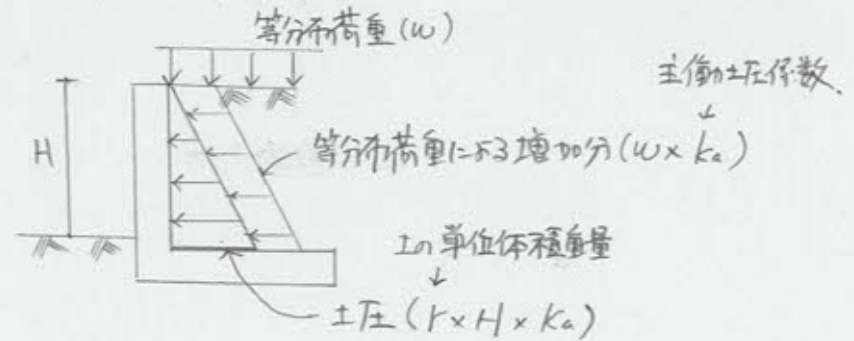 等分布荷重(w)
主働土圧係数
↓
H
等分布荷重による増加分(w×ka)
土の単位体積重量
↓
土圧(r×H×Ka)